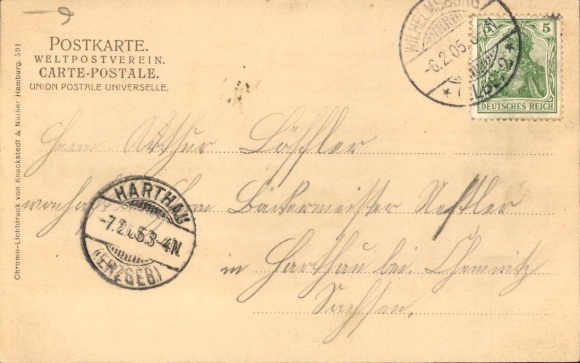 POSTKARTE.
WELTPOSTVEREIN.
CARTE-POSTALE.
UNION POSTALE UNIVERSELLE.
Chromo-Lichtdruck von Knackstedt & Näther Hamburg. 591
WILHELMSBURG
-6.2.05.
5
DEUTSCHES REICH
Herrn Arthur Löffler
Herrn Bäckermeister Nestler
in Harthau bei Chemnitz
Sachsen.
HARTHAU
-7.2.05.3-4N.
(ERZGEB.)